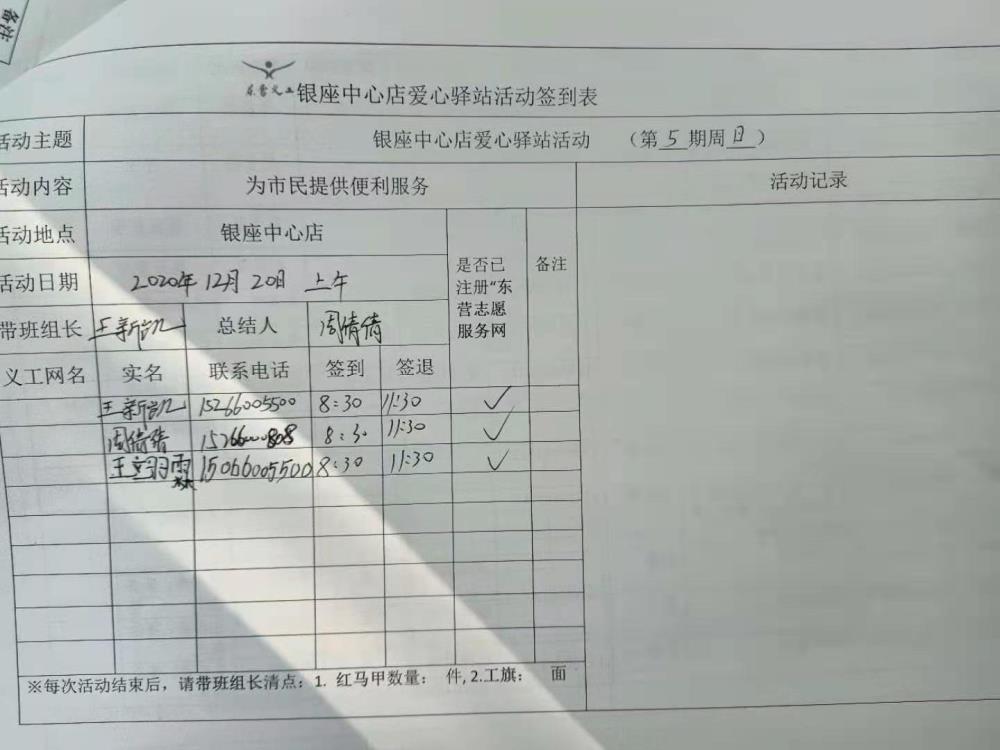 备注
东营义工 银座中心店爱心驿站活动签到表
活动主题 银座中心店爱心驿站活动 （第 5 期周 日 ）
活动内容 为市民提供便利服务 活动记录
活动地点 银座中心店 是否已注册“东营志愿服务网 备注
活动日期 2020年 12月 20日 上午
带班组长 王新凯 总结人 周倩倩
义工网名 实名 联系电话 签到 签退
王新凯 15266005500 8:30 11:30 ✓
周倩倩 15266000808 8:30 11:30 ✓
15066005500 8:30 11:30 ✓
※每次活动结束后，请带班组长清点：1. 红马甲数量： 件, 2.工旗： 面